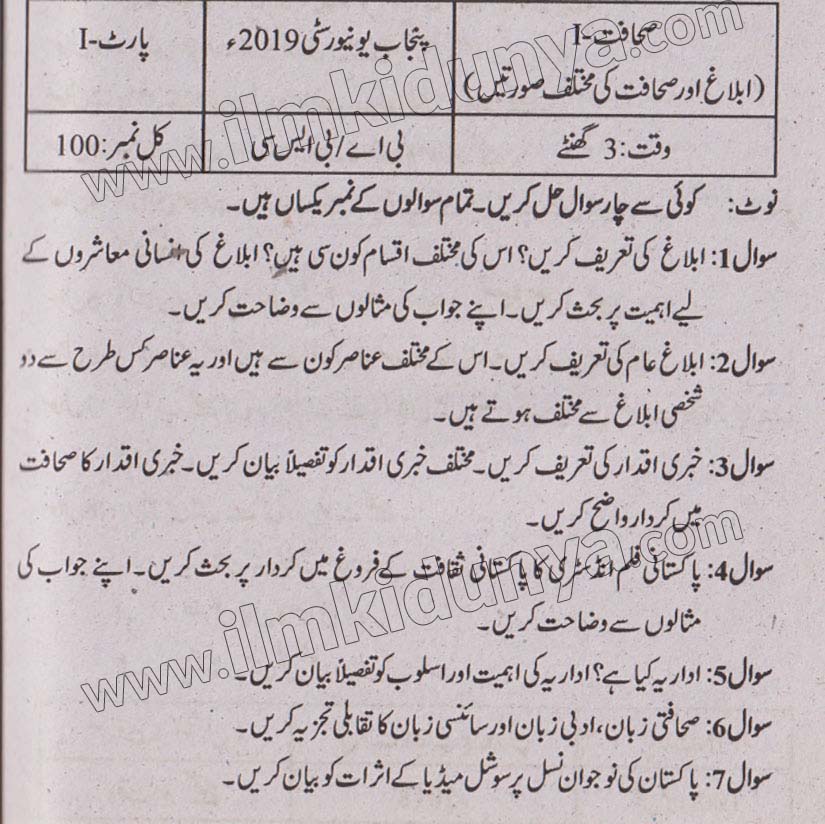 صحافت-I
پنجاب یونیورسٹی 2019ء
پارٹ-I
(ابلاغ اور صحافت کی مختلف صورتیں)
وقت: 3 گھنٹے
بی اے/بی ایس سی
کل نمبر: 100
نوٹ: کوئی سے چار سوال حل کریں۔ تمام سوالوں کے نمبر یکساں ہیں۔
سوال 1: ابلاغ کی تعریف کریں؟ اس کی مختلف اقسام کون سی ہیں؟ ابلاغ کی انسانی معاشروں کے
لیے اہمیت پر بحث کریں۔ اپنے جواب کی مثالوں سے وضاحت کریں۔
سوال 2: ابلاغ عام کی تعریف کریں۔ اس کے مختلف عناصر کون سے ہیں اور یہ عناصر کس طرح سے دو
شخصی ابلاغ سے مختلف ہوتے ہیں۔
سوال 3: خبری اقدار کی تعریف کریں۔ مختلف خبری اقدار کو تفصیلاً بیان کریں۔ خبری اقدار کا صحافت
میں کردار واضح کریں۔
سوال 4: پاکستانی فلم انڈسٹری کا پاکستانی ثقافت کے فروغ میں کردار پر بحث کریں۔ اپنے جواب کی
مثالوں سے وضاحت کریں۔
سوال 5: اداریہ کیا ہے؟ اداریہ کی اہمیت اور اسلوب کو تفصیلاً بیان کریں۔
سوال 6: صحافتی زبان، ادبی زبان اور سائنسی زبان کا تقابلی تجزیہ کریں۔
سوال 7: پاکستان کی نوجوان نسل پر سوشل میڈیا کے اثرات کو بیان کریں۔
www.ilmkidunya.com
www.ilmkidunya.com